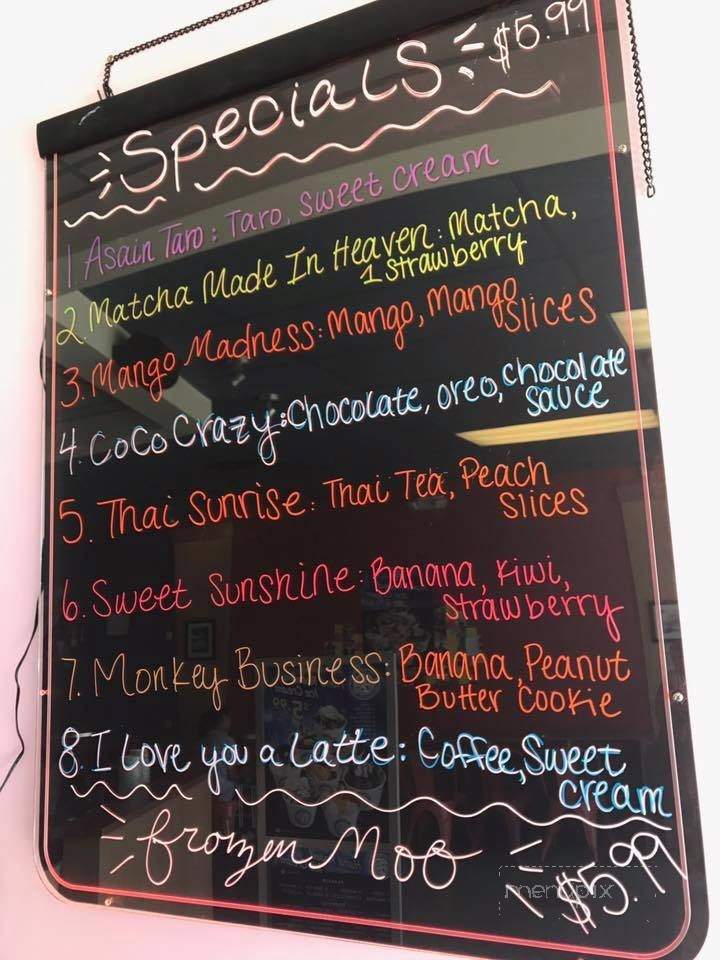 Specials $5.99
1 Asain Taro: Taro, sweet cream
2. Matcha Made In Heaven: Matcha,
1 strawberry
3. Mango Madness: Mango, Mango
slices
4. CoCo Crazy: Chocolate, oreo, chocolate
sauce
5. Thai Sunrise: Thai Tea, Peach
slices
6. Sweet Sunshine: Banana, Kiwi,
strawberry
7. Monkey Business: Banana, Peanut
Butter Cookie
8. I Love you a Latte: Coffee, Sweet
cream
frozen Moo $5.99
menupix